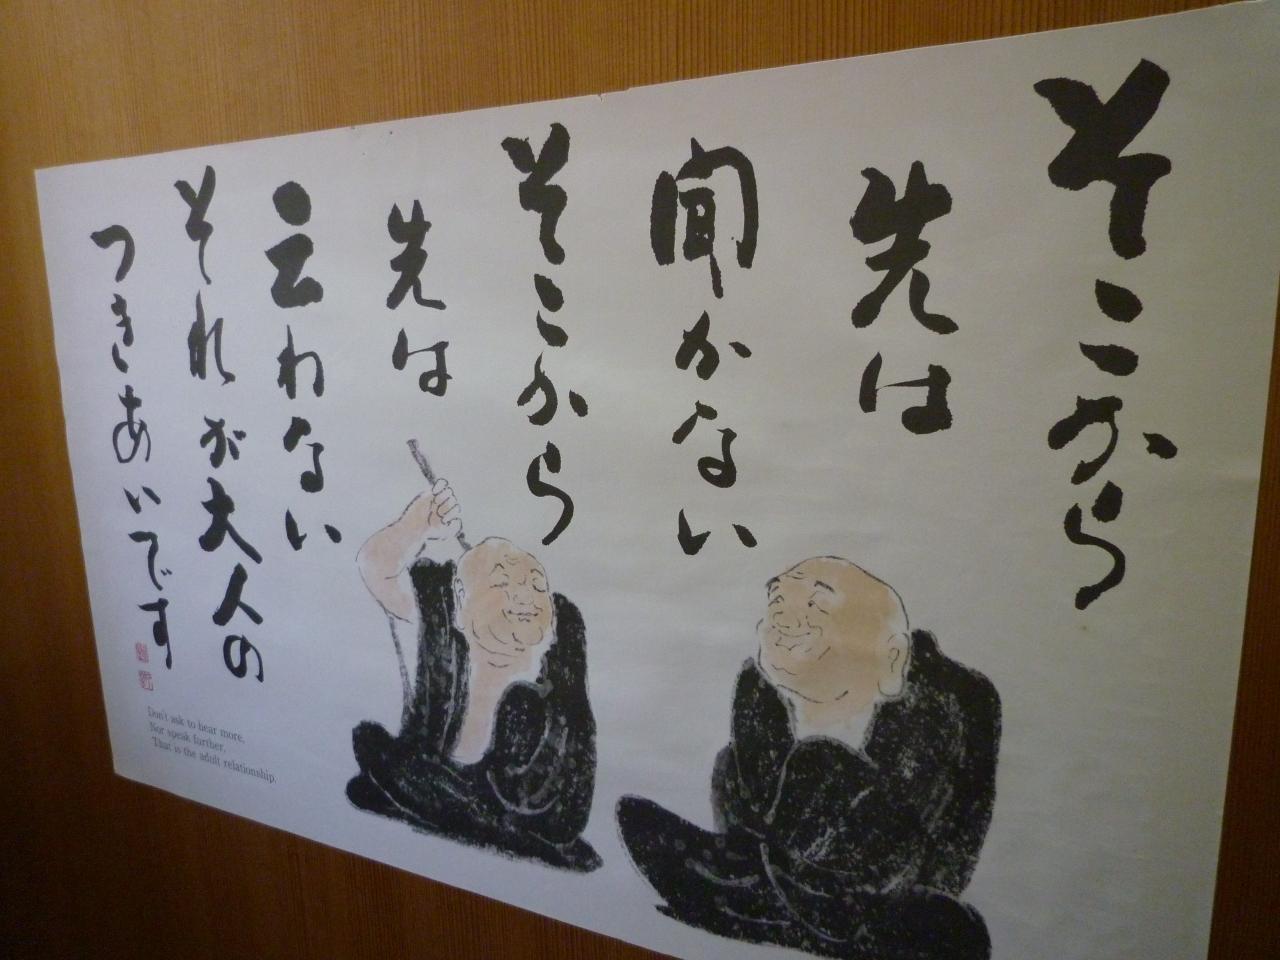 そこから
先は
聞かない
そこから
先は
云わない
それが大人の
つきあいです
Don't ask to hear more,
Nor speak further,
That is the adult relationship.